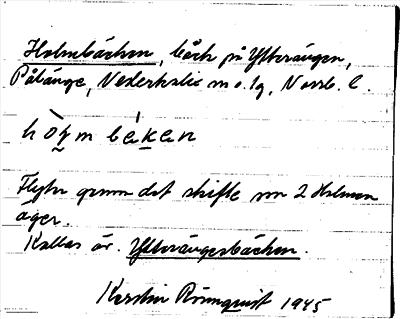 Holmbäcken, bäck på Ytterängen,
Pålänge, Nederkalix m o. lg, Norrb. l.
hòl̥m bè́kan
Flyter genom det skifte som 2 Holmen
äger.
Kallas äv. Ytterängesbäcken.
Kerstin Rönnquist 1945